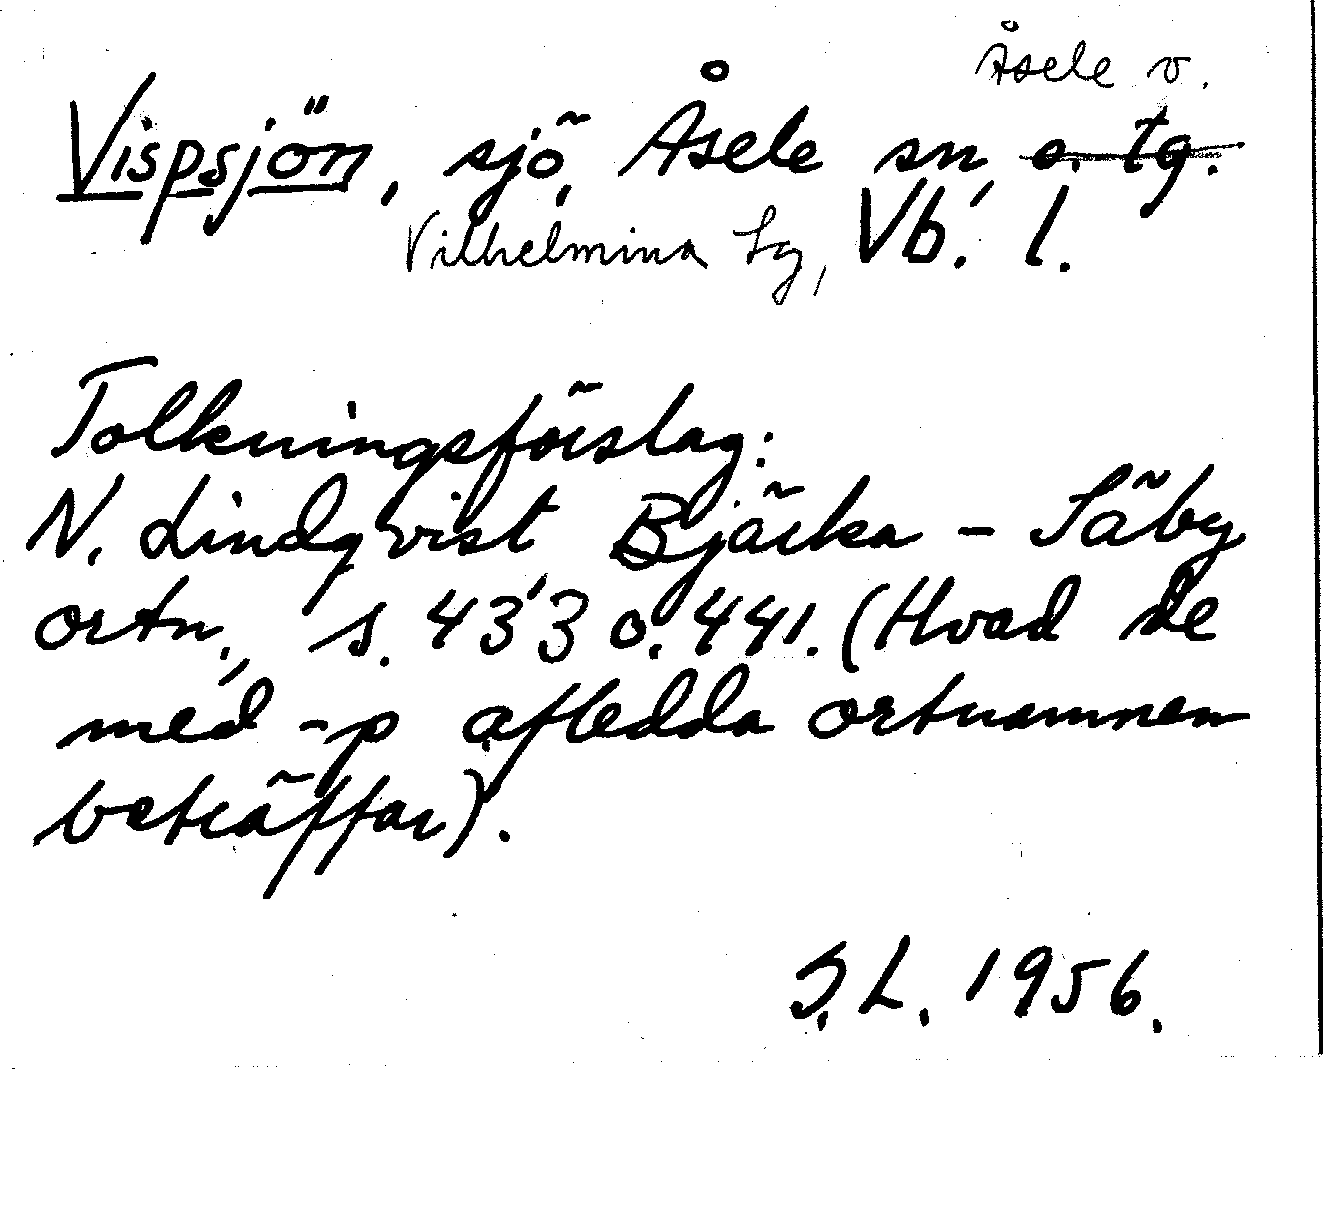 Åsele v.
Vispsjön, sjö, Åsele sn, o. tg.
Vilhelmina tg, Vb. l.
Tolkningsförslag:
N. Lindqvist Bjärka-Säby
ortn., s. 433 o. 441. (Hvad de
med -p afledda ortnamnen
beträffar).
I.L. 1956.